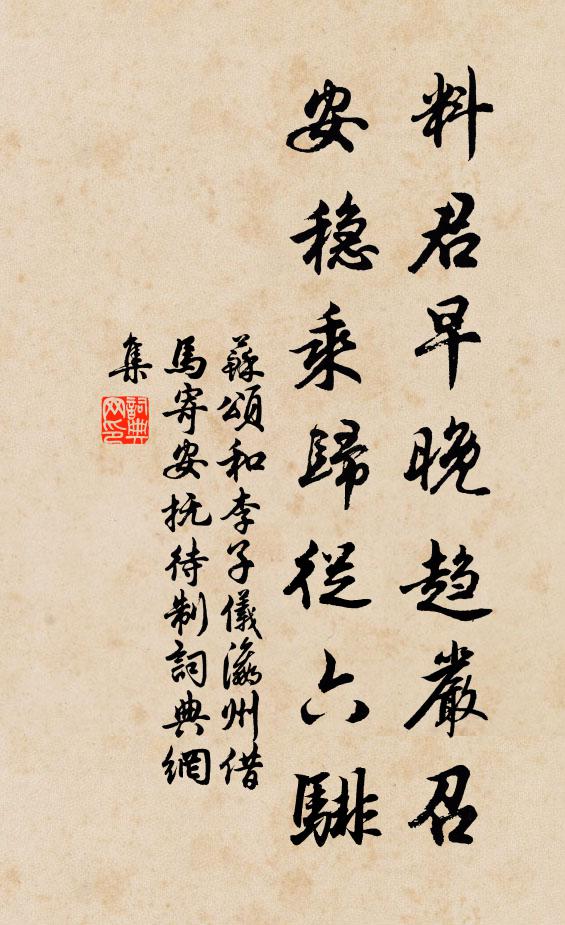 料君早晚趋嚴召
安穩乘歸從六騑
蘇頌和李子儀瀛州借
馬寄安抚待制詞典網
集
詞典网印